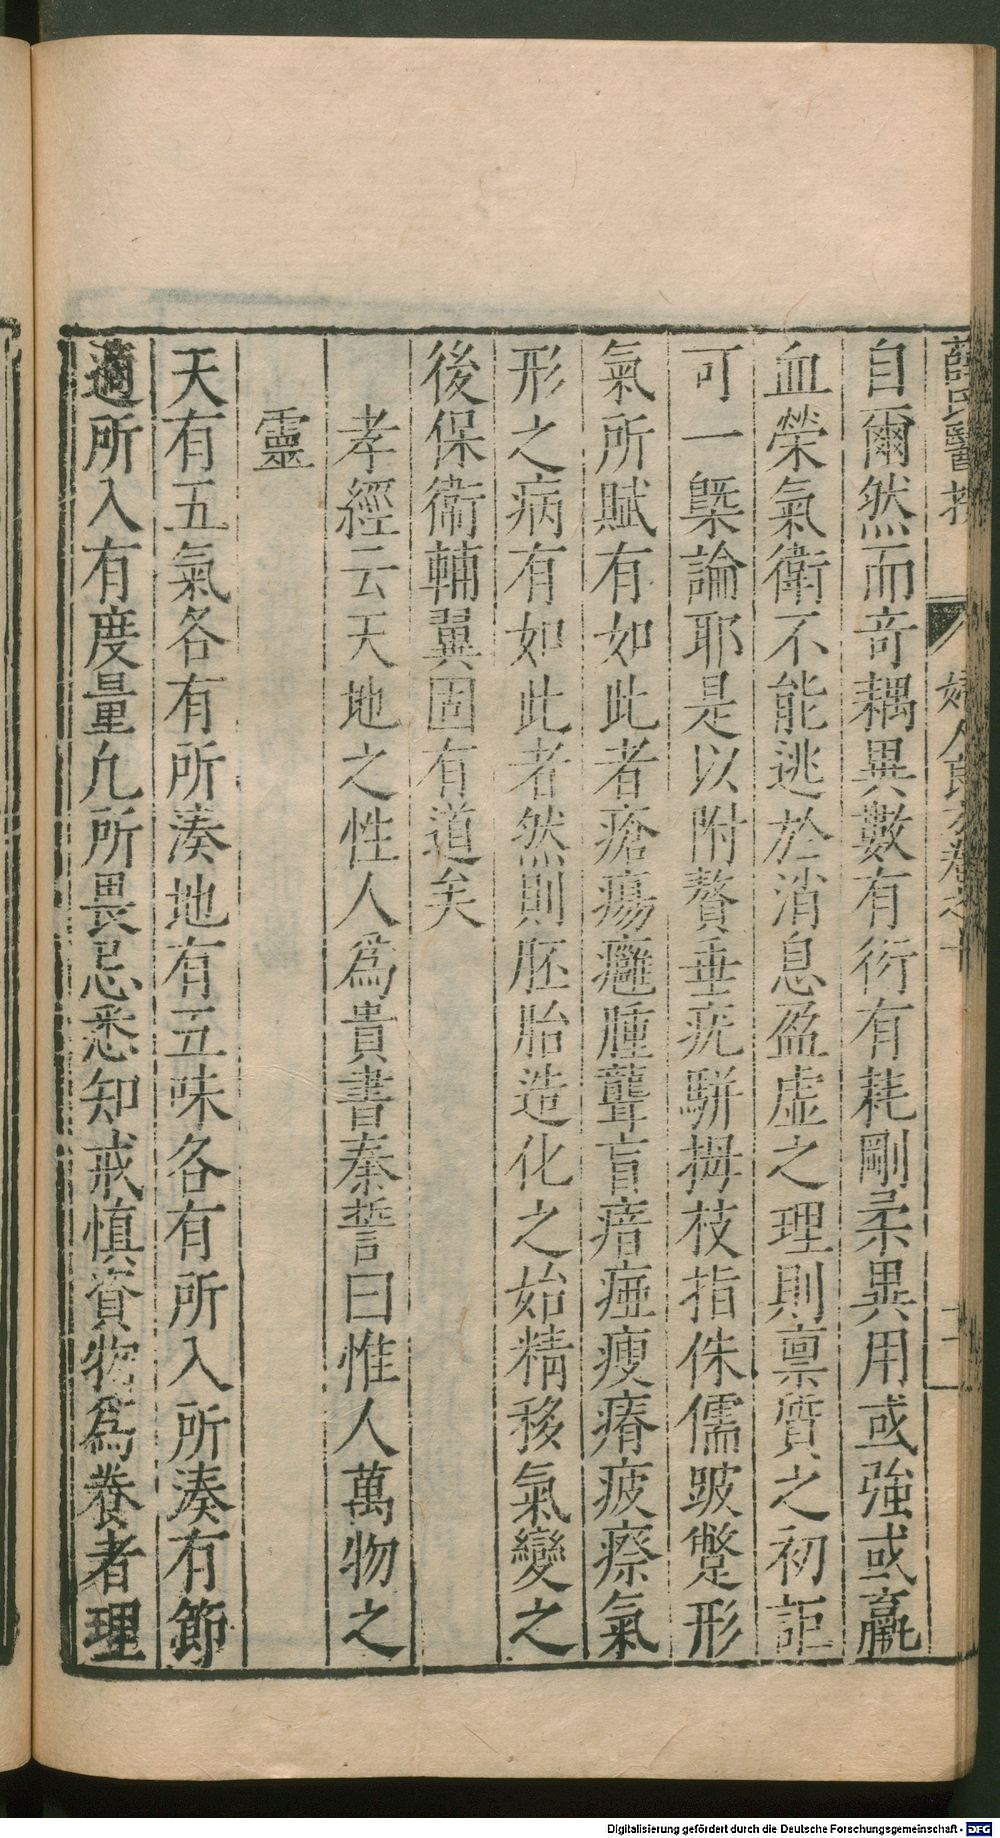 薛氏醫按　婦人良方卷之十　二
自爾然而奇耦異數有衍有耗剛柔異用或強或羸
血榮氣衛不能逃於消息盈虛之理則禀質之初詎
可一槩論耶是以附贅垂疣駢拇枝指侏儒跛躄形
氣所賦有如此者瘡瘍癰腫聾盲瘖瘂瘦瘠疲瘵氣
形之病有如此者然則胚胎造化之始精移氣變之
後保衞輔翼固有道矣
孝經云天地之性人為貴書秦誓曰惟人萬物之
靈
天有五氣各有所湊地有五味各有所入所湊有節
適所入有度量凡所畏忌悉知戒慎資物為養者理
Digitalisierung gefördert durch die Deutsche Forschungsgemeinschaft - DFG